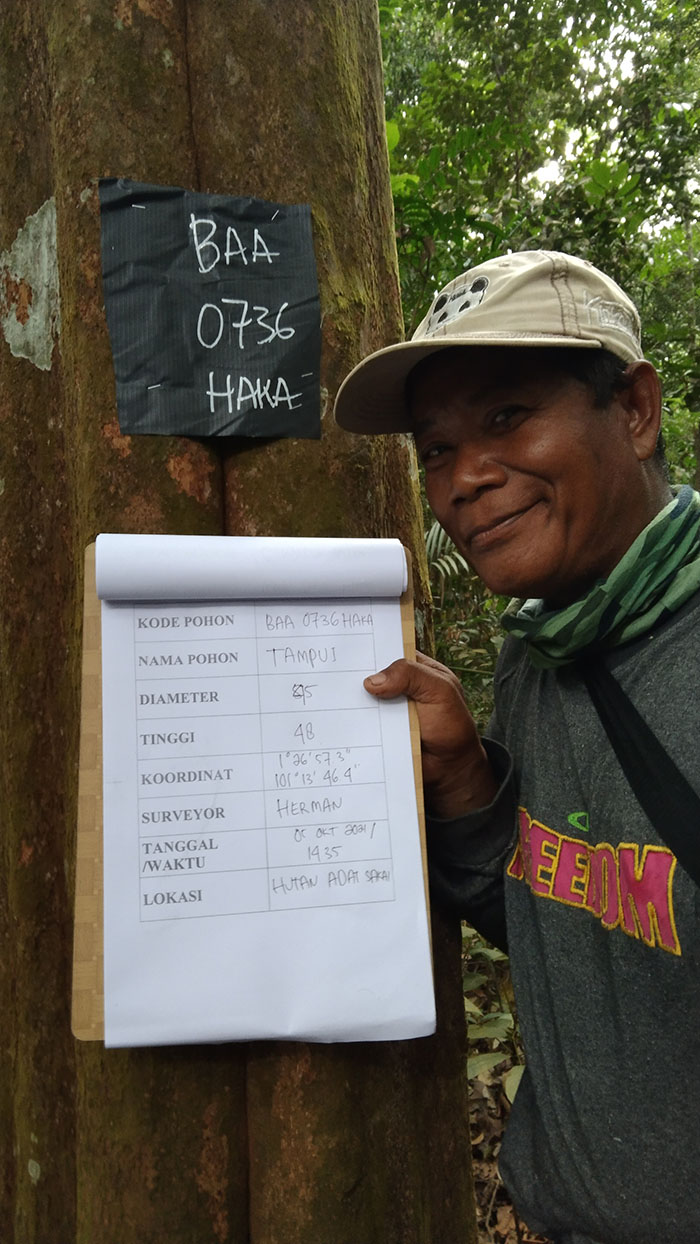 BAA
0736
HAKA
KODE POHON BAA 0736 HAKA
NAMA POHON TAMPUI
DIAMETER
TINGGI 48
KOORDINAT 1°26'57.3"
101°13' 46.4"
SURVEYOR HERMAN
TANGGAL 05 OKT 2021/
/WAKTU 1435
LOKASI HUTAN ADAT SAKAI
FREEDOM